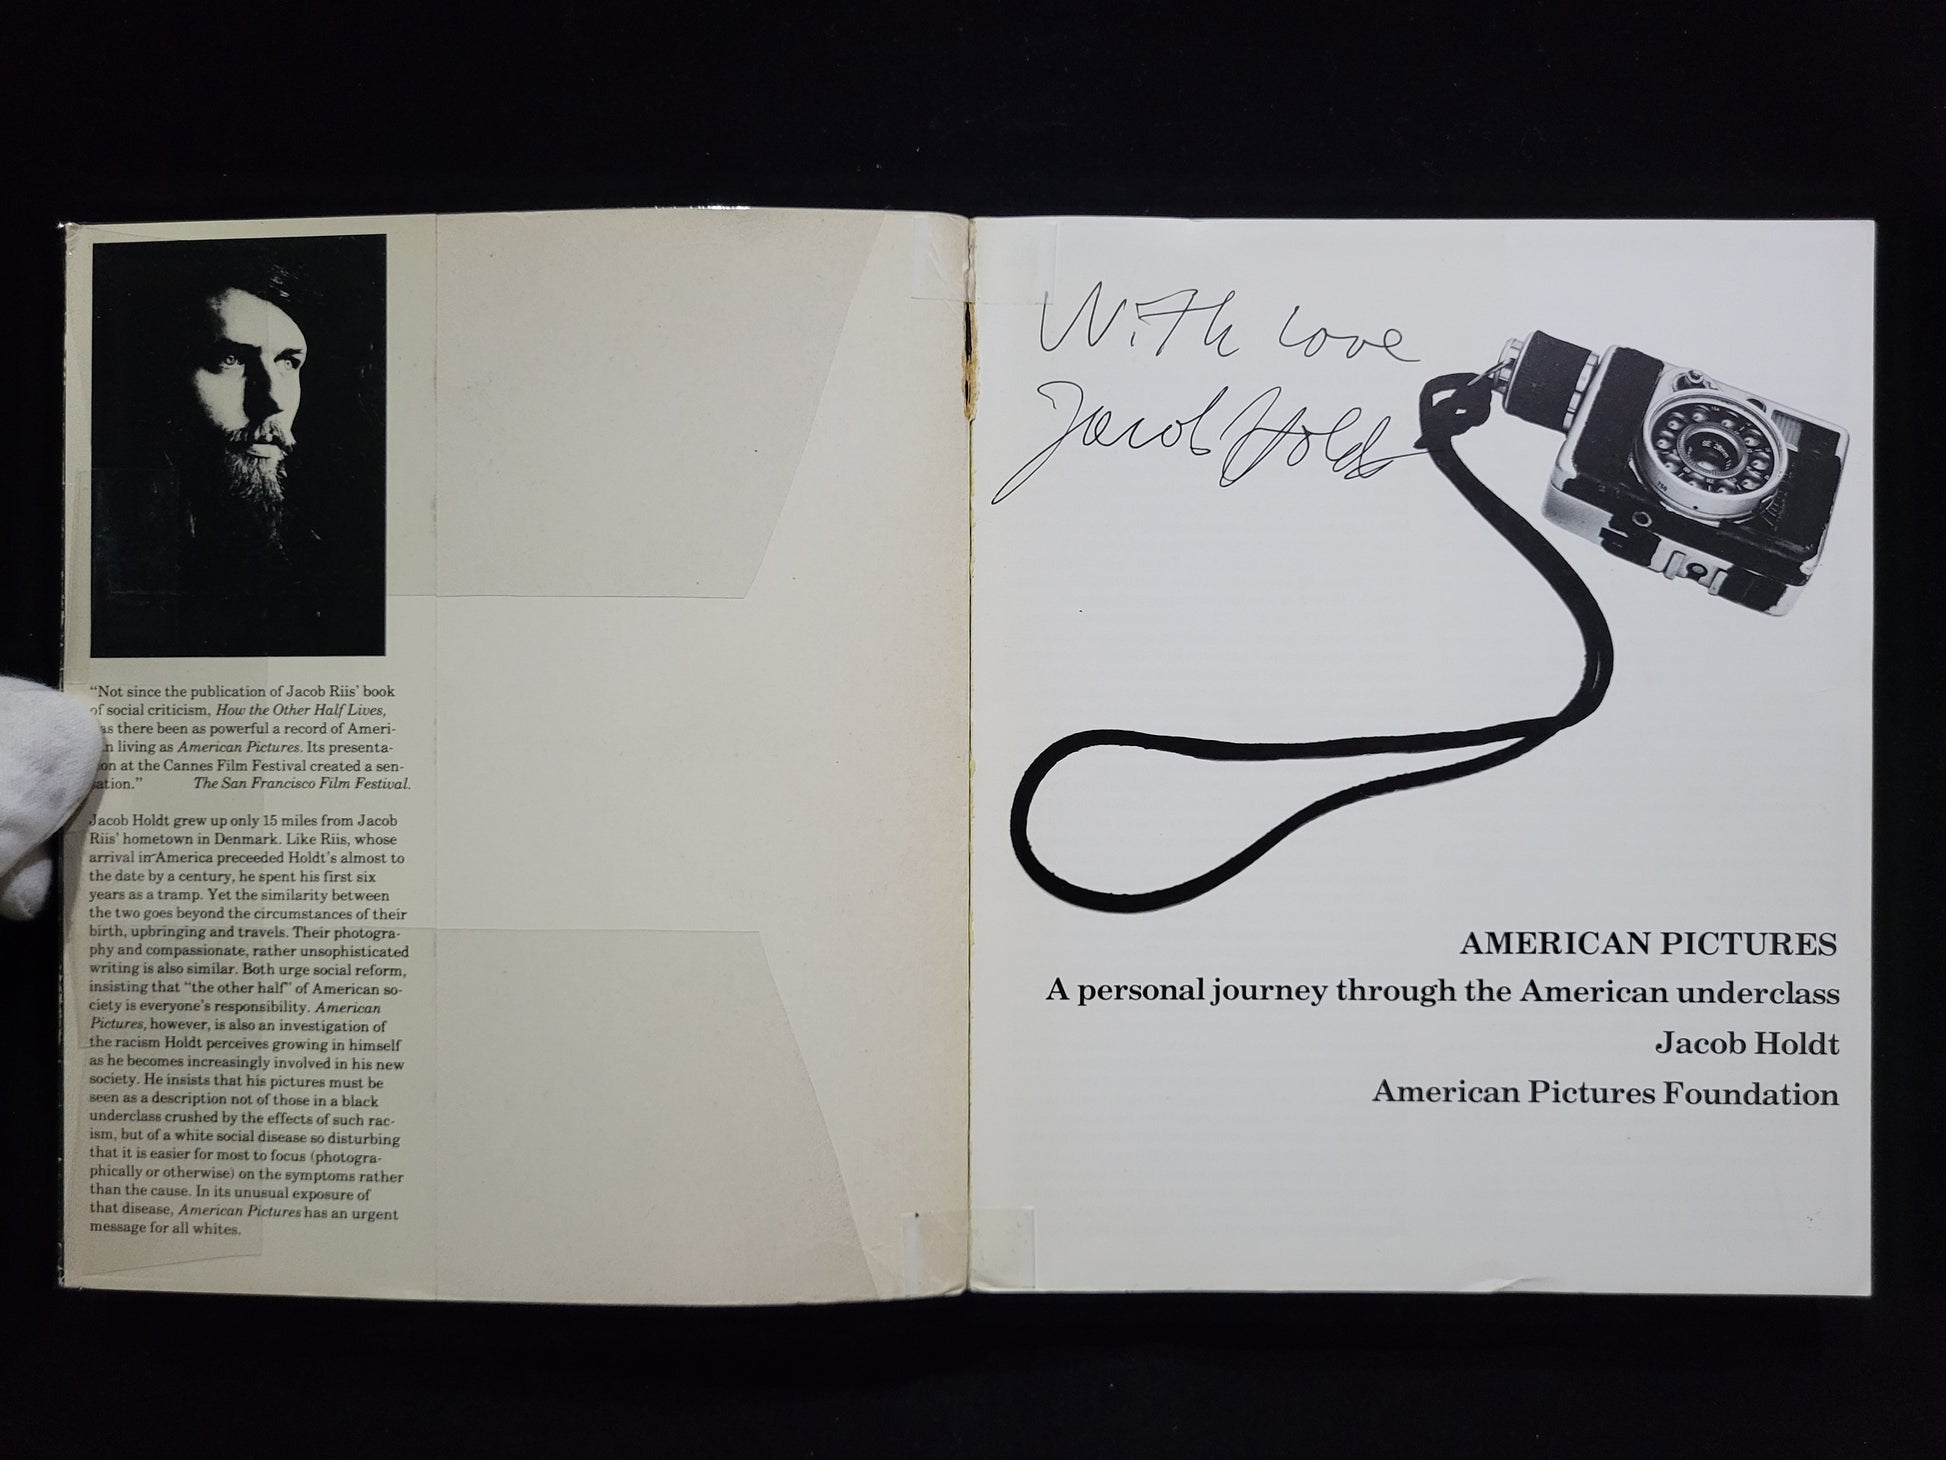 "Not since the publication of Jacob Riis' book
of social criticism, How the Other Half Lives,
as there been as powerful a record of Ameri-
n living as American Pictures. Its presenta-
on at the Cannes Film Festival created a sen-
sation." The San Francisco Film Festival.
Jacob Holdt grew up only 15 miles from Jacob
Riis' hometown in Denmark. Like Riis, whose
arrival in America preceeded Holdt's almost to
the date by a century, he spent his first six
years as a tramp. Yet the similarity between
the two goes beyond the circumstances of their
birth, upbringing and travels. Their photogra-
phy and compassionate, rather unsophisticated
writing is also similar. Both urge social reform,
insisting that "the other half" of American so-
ciety is everyone's responsibility. American
Pictures, however, is also an investigation of
the racism Holdt perceives growing in himself
as he becomes increasingly involved in his new
society. He insists that his pictures must be
seen as a description not of those in a black
underclass crushed by the effects of such rac-
ism, but of a white social disease so disturbing
that it is easier for most to focus (photogra-
phically or otherwise) on the symptoms rather
than the cause. In its unusual exposure of
that disease, American Pictures has an urgent
message for all whites.
With love
Jacob Holdt
AMERICAN PICTURES
A personal journey through the American underclass
Jacob Holdt
American Pictures Foundation